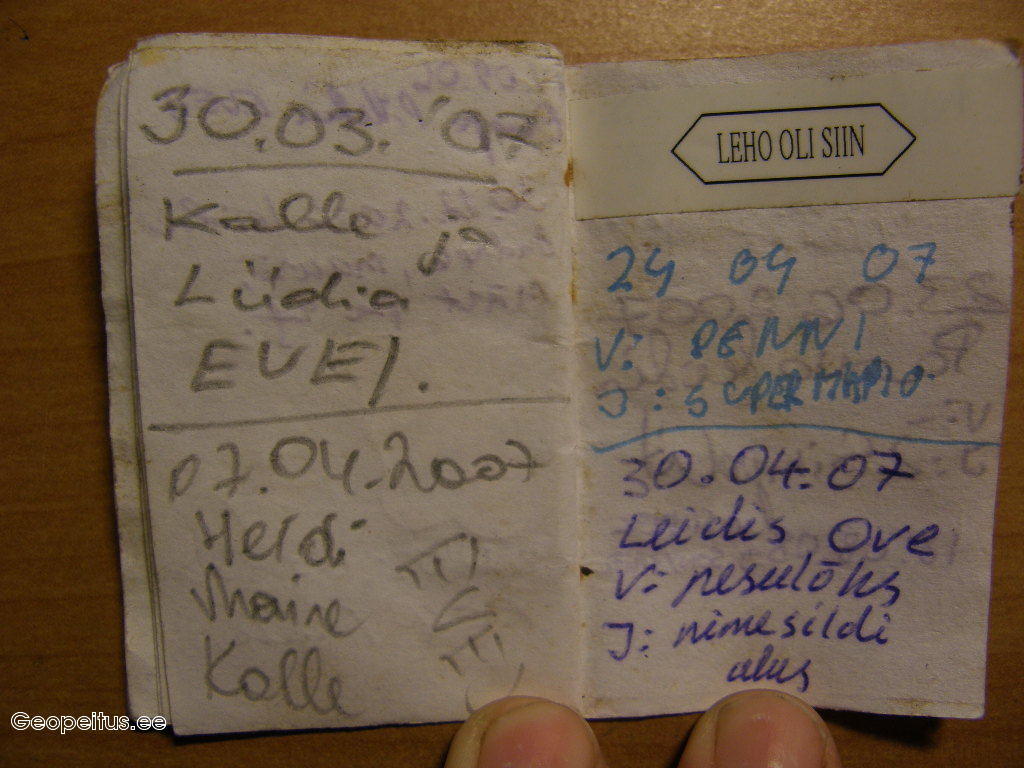 30.03. '07
Kalle ja
Liidia
EVEJ.
07.04.2007
Heidi
Maire
Kalle
EVEJ
LEHO OLI SIIN
24 04 07
V: PENNI
J: SUPERMARIO
30.04.07
Leidis Ove
V: pesulõks
J: nimesildi
alus
Geopeitus.ee